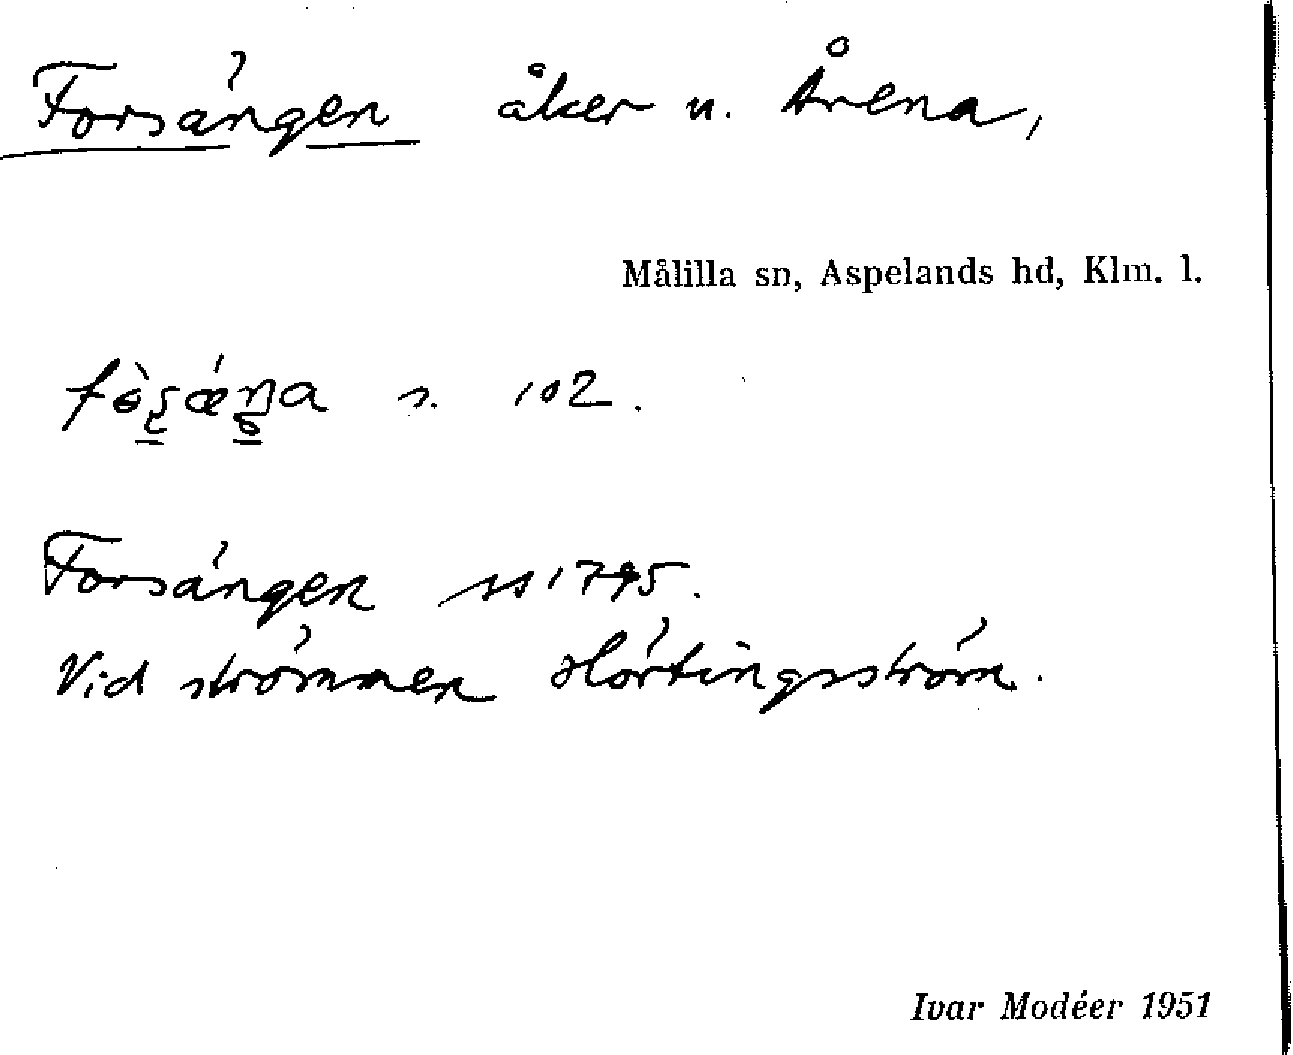 Forsängen åker n. Årena,
Målilla sn, Aspelands hd, Klm. l.
s. 102.
Forsängen ss 1795.
Vid strömmen Hörtingsström.
Ivar Modéer 1951